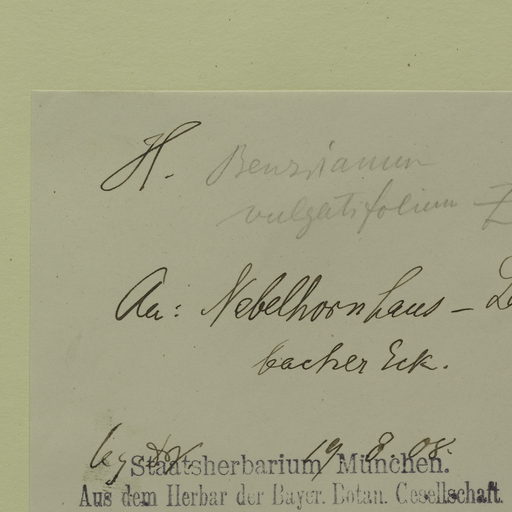 H. Benzianum
vulgatifolium Z
An: Nebelhornhaus – La
bacher Eck.
leg 19 8 08.
Staatsherbarium München.
Aus dem Herbar der Bayer. Botan. Gesellschaft.